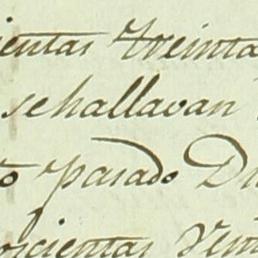 ientas treinta
sehallavan
to pasado Di
oscientas Vein